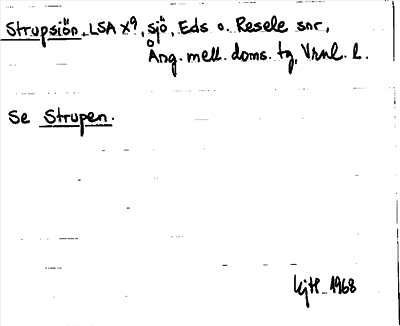 Strupsjön, LSA X9, sjö, Eds o. Resele snr,
Ång. mell. doms. tg, Vrnl. l.
Se Strupen.
KjH 1968